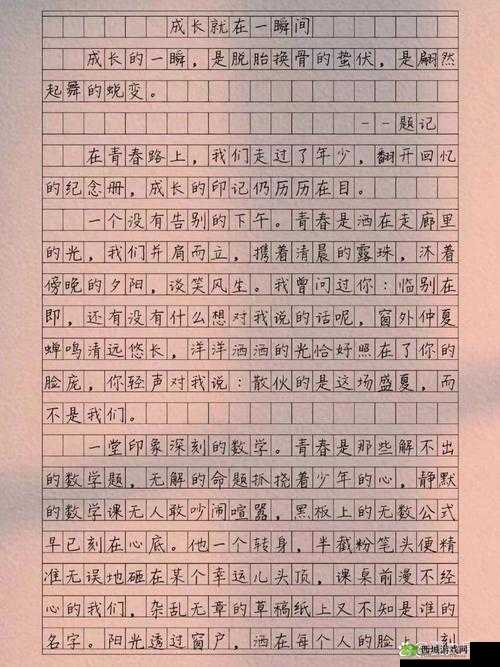 成长就在一瞬间
成长的一瞬，是脱胎换骨的蛰伏，是翩然
起舞的蜕变。
--题记
在青春路上，我们走过了年少，翻开回忆
的纪念册，成长的印记仍历历在目。
一个没有告别的下午。青春是洒在走廊里
的光，我们并肩而立，携着清晨的露珠，沐着
傍晚的夕阳，谈笑风生。我曾问过你：临别在
即，还有没有什么想对我说的话呢，窗外仲夏
蝉鸣清远悠长，洋洋洒洒的光恰好照在了你的
脸庞，你轻声对我说：散伙的是这场盛夏，而
不是我们。
一堂印象深刻的数学。青春是那些解不出
的数学题，无解的命题抓挠着少年的心，静默
的数学课无人敢吵闹喧嚣，黑板上的无数公式
早已刻在心底。他一个转身，半截粉笔头便精
准无误地砸在某个幸运儿头顶，课桌前漫不经
心的我们，杂乱无章的草稿纸上又不知是谁的
名字。阳光透过窗户，洒在每个人的脸上，刻
西城游戏网